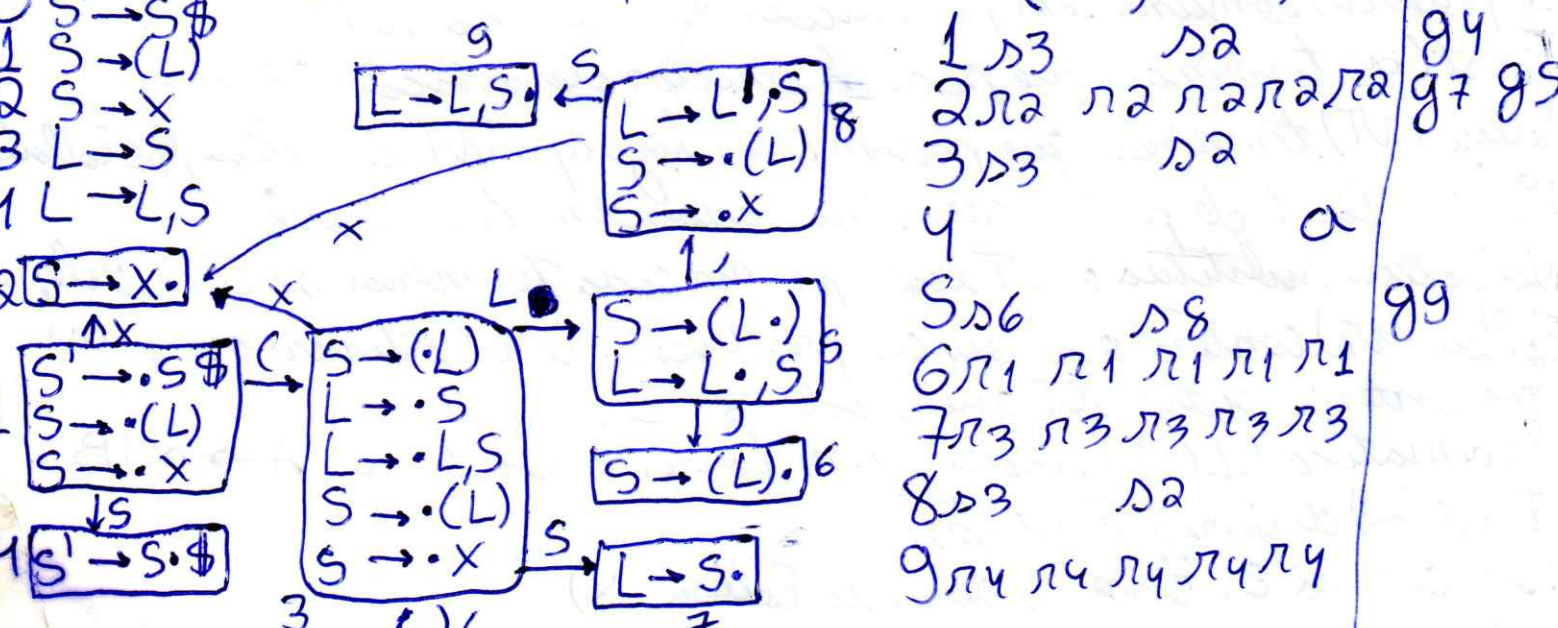 0 S' → S$
1 S → (L)
2 S → X
3 L → S
4 L → L,S
2 S → X.
X
S' → .S$
S → .(L)
S → .X
S
4 S' → S.$
(
S → (.L)
L → .S
L → .L,S
S → .(L)
S → .X
3
X
X
9
L → L,S.
S
L → L,.S
S → .(L)
S → .X
8
,
L
S → (L.)
L → L.,S
5
)
S → (L). 6
S
L → S.
7
1 s3 s2 g4
2 r2 r2 r2 r2 r2 g7 g5
3 s3 s2
4 a
5 s6 s8 g9
6 r1 r1 r1 r1 r1
7 r3 r3 r3 r3 r3
8 s3 s2
9 r4 r4 r4 r4 r4